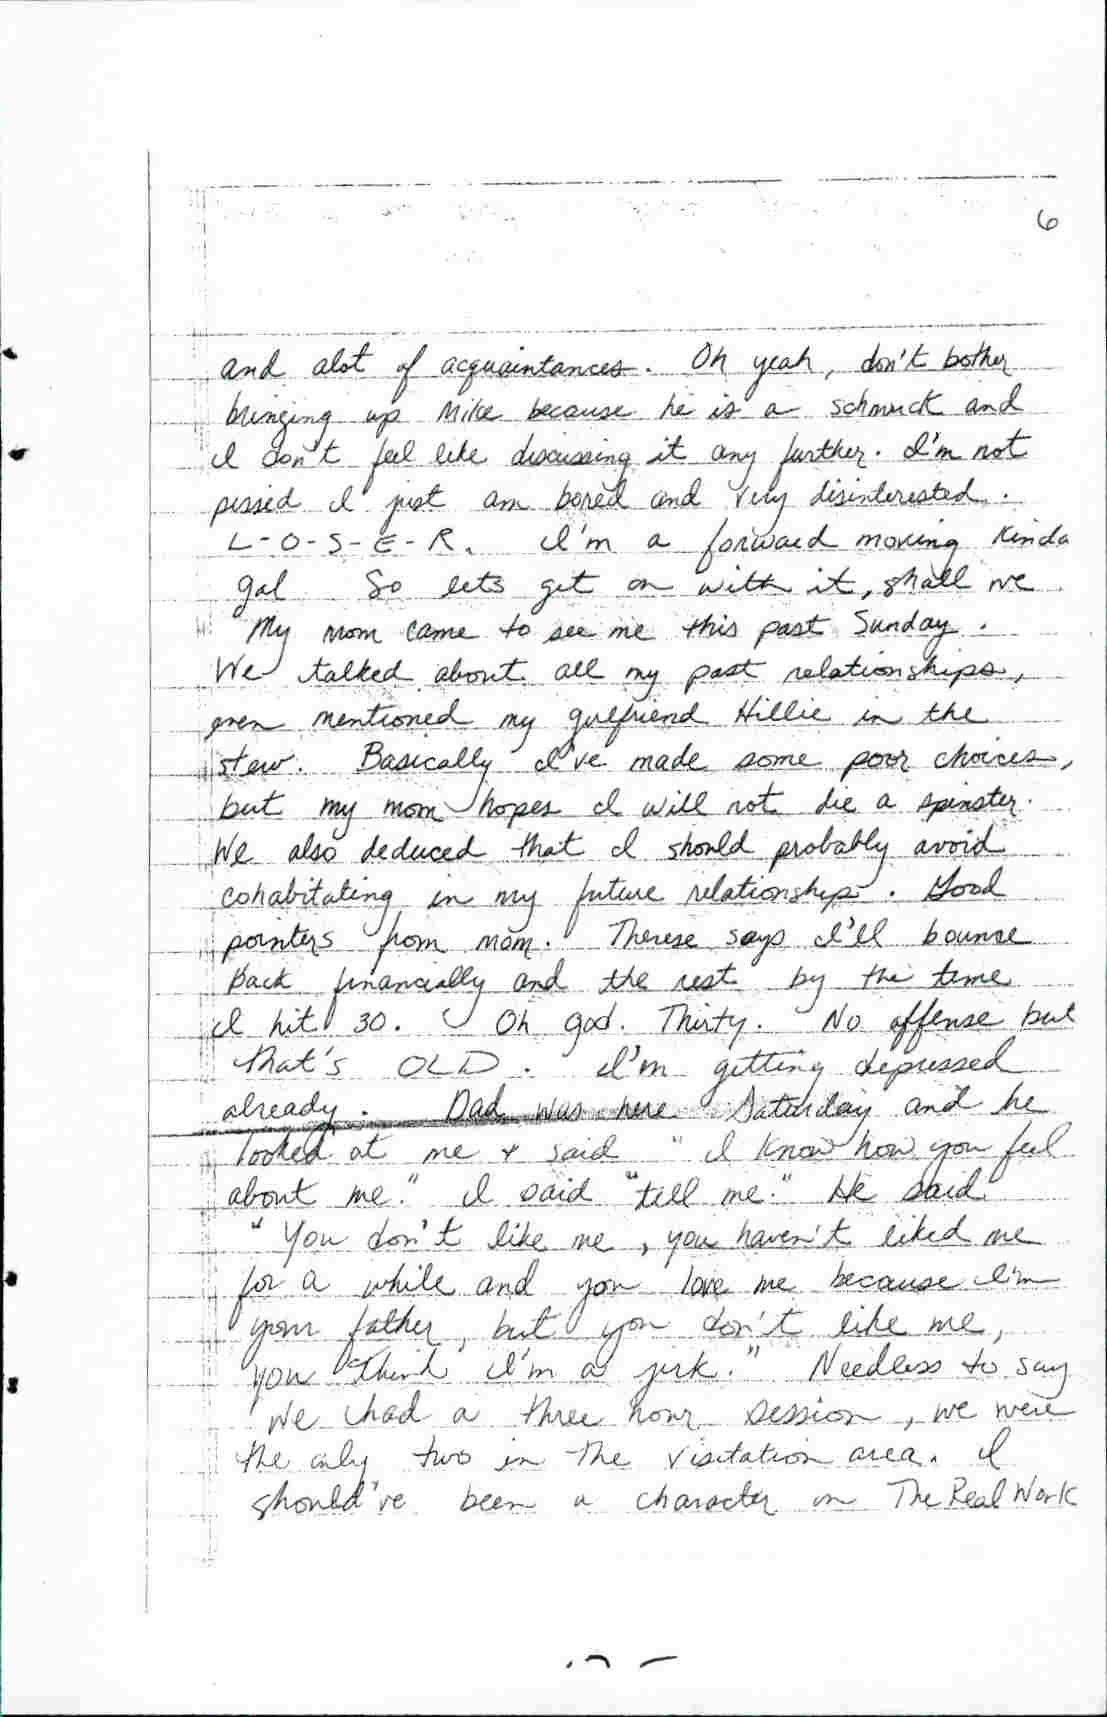 6
and alot of acquaintances. Oh yeah, don't bother
bringing up Mike because he is a schmuck and
I don't feel like discussing it any further. I'm not
pissed I just am bored and very disinterested.
L-O-S-E-R. I'm a forward moving kinda
gal So lets get on with it, shall we
My mom came to see me this past Sunday.
We talked about all my past relationships,
even mentioned my girlfriend Hillie in the
stew. Basically I've made some poor choices,
but my mom hopes I will not die a spinster.
We also deduced that I should probably avoid
cohabitating in my future relationships. Good
pointers from mom. Therese says I'll bounce
back financially and the rest by the time
I hit 30. Oh god. Thirty. No offense but
that's OLD. I'm getting depressed
already. Dad was here Saturday and he
looked at me & said "I know how you feel
about me." I said "tell me." He said
"You don't like me, you haven't liked me
for a while and you love me because I'm
your father, but you don't like me,
you think I'm a jerk." Needless to say
we had a three hour session, we were
the only two in the visitation area. I
should've been a character on The Real Work